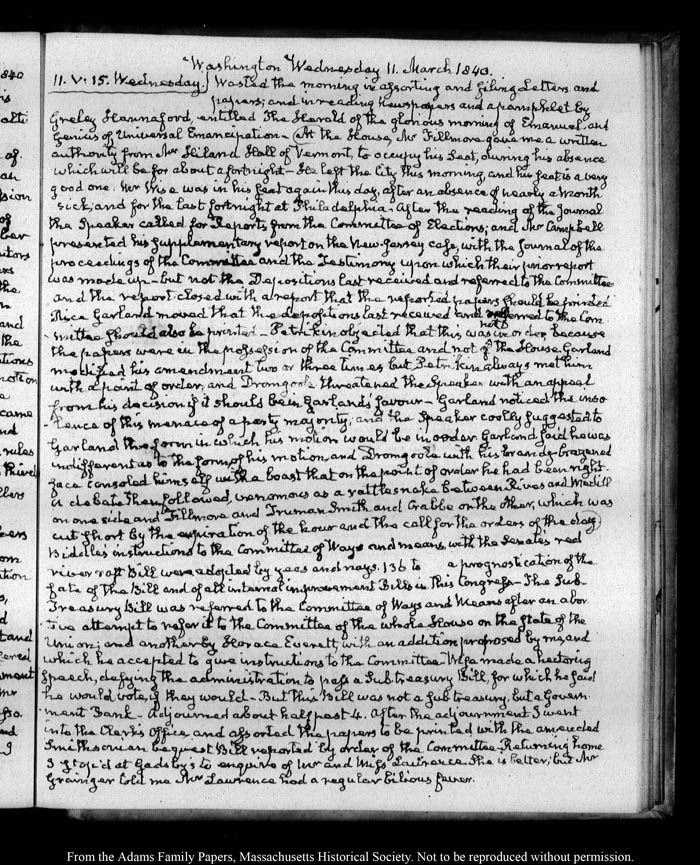 Washington Wednesday 11. March 1840.
11. V:15. Wednesday. Wasted the morning in assorting and filing Letters and
papers; and in reading newspapers and a pamphlet by
Greley Hannaford, entitled The Herald of the glorious morning of Emanuel, and
Genius of Universal Emancipation— At the House, Mr Fillmore gave me a written
authority from Mr Hiland Hall of Vermont, to occupy his Seat, during his absence
which will be for about a fortnight— He left the City this morning, and his seat is a very
good one. Mr Wise was in his seat again this day, after an absence of nearly a month
sick; and for the last fortnight at Philadelphia— After the reading of the Journal
the Speaker called for Reports from the Committee of Elections; and Mr Campbell
presented his supplementary report on the New-Jersey case, with the Journal of the
proceedings of the Committee and the Testimony upon which their prior report
was made up— but not the Depositions last received and referred to the Committee
and the report closed with a report that the reported papers should be printed
Rice Garland moved that the depositions last received and referred to the Com
mittee should also be printed— Petrikin objected that this was not in order, because
the papers were in the possession of the Committee and not of the House. Garland
modified his amendment two or three times but Petrikin always met him
with a point of order, and Dromgoole threatened the Speaker with an appeal
from his decision if it should be in Garland's favour— Garland noticed the inso
lence of this menace of a party majority, and the Speaker cooly suggested to
Garland the form in which his motion would be in order. Garland said he was
indifferent as to the form of his motion, and Dromgoole with his brandy-brazened
face consoled himself with a boast that on the point of order he had been right.
A debate then followed, venomous as a rattlesnake between Rives and Medill
on one side and Fillmore and Truman Smith and Crabbe on the other, which was
cut short by the expiration of the hour and the call for the orders of the day
Biddle's instructions to the Committee of Ways and means, with the Senate's red
river raft Bill were adopted by yeas and nays. 136 to a prognostication of the
fate of the Bill and of all internal improvement Bills in this Congress— The Sub-
Treasury Bill was referred to the Committee of Ways and Means after an abor
tive attempt to refer it to the Committee of the whole House on the State of the
Union; and another by Horace Everett, with an addition proposed by me, and
which he accepted to give instructions to the Committee— Wise made a hectoring
speech, defying the administration to pass a Subtreasury Bill, for which he said
he would vote, if they would— But this Bill was not a Subtreasury, but a Govern
ment Bank— Adjourned about half past 4. After the adjournment I went
into the Clerk's Office and assorted the papers to be printed with the amended
Smithsonian bequest Bill reported by order of the Committee. Returning home
I stop'd at Gadsby's to enquire of Mr and Miss Lawrence. She is better; but Mr
Grainger told me Mr Lawrence had a regular bilious fever.
From the Adams Family Papers, Massachusetts Historical Society. Not to be reproduced without permission.